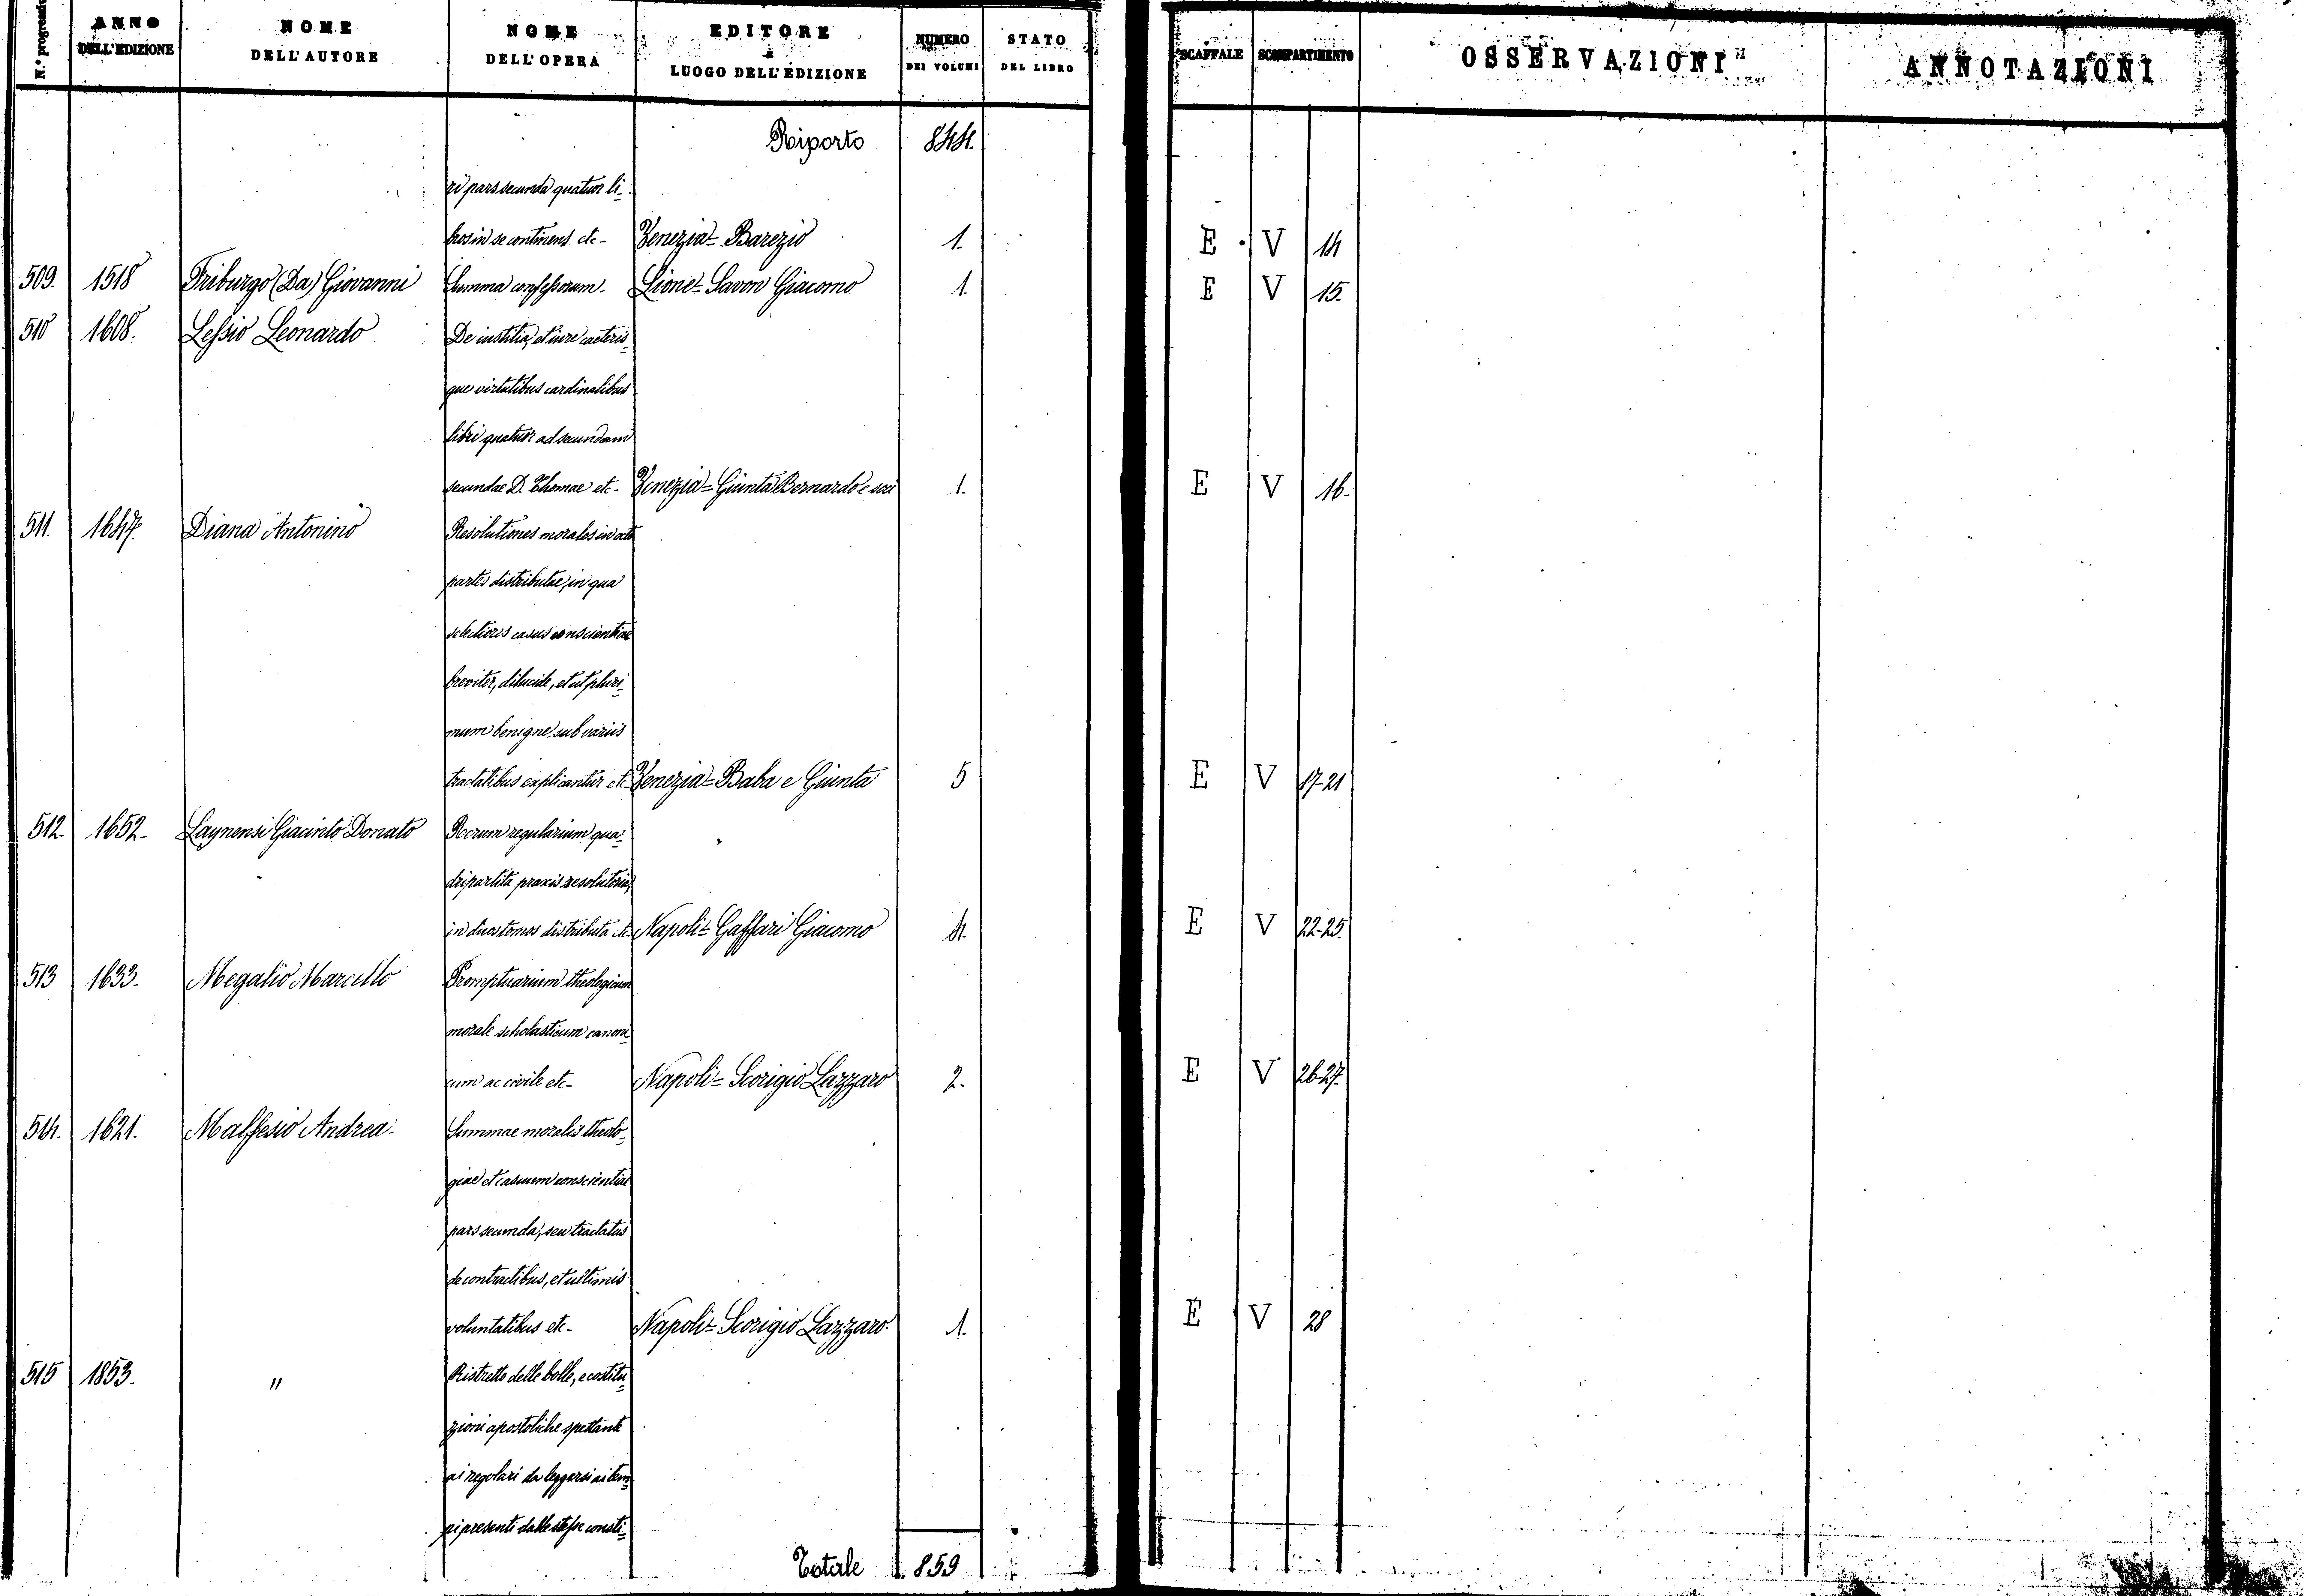 N.° progressivo | ANNO DELL'EDIZIONE | NOME DELL'AUTORE | NOME DELL'OPERA | EDITORE e LUOGO DELL'EDIZIONE | NUMERO DEI VOLUMI | STATO DEL LIBRO | SCAFFALE | SCOMPARTIMENTO | OSSERVAZIONI | ANNOTAZIONI
Riporto 844.
ri pars secunda quatuor li-
bros in se continens etc- Venezia- Barezio 1. E V 14
509. 1518 Friburgo (Da) Giovanni Summa confessorum- Lione- Savon Giacomo 1. E V 15.
510 1608. Lessio Leonardo De iustitia, et iure caeteris-
que virtutibus cardinalibus
libri quatuor ad secundam
secundae D. Thomae etc- Venezia- Giunta Bernardo e soci 1. E V 16.
511. 1647. Diana Antonino Resolutiones morales in octo
partes distributae, in qua
selectiores casus conscientiae
breviter, dilucide, et ut pluri-
mum benigne, sub variis
tractatibus explicantur etc- Venezia- Baba e Giunta 5 E V 17-21
512. 1652- Laynensi Giacinto Donato Rerum regularium qua-
dripartita praxis resolutoria,
in duas tomos distributa etc- Napoli- Gaffari Giacomo 4. E V 22-25.
513 1633- Megalio Marcello Promptuarium theologicum
morale scholasticum canoni-
cum ac civile etc- Napoli- Scorigio Lazzaro 2. E V 26-27.
514. 1621. Malfesio Andrea- Summae moralis theolo-
giae et casuum conscientiae
pars secunda, seu tractatus
de contractibus, et ultimis
voluntatibus etc- Napoli- Scorigio Lazzaro. 1. E V 28
515 1853. " Ristretto delle bolle, e costitu-
zioni apostoliche spettanti
ai regolari da leggersi ai tem-
pi presenti dalle stesse consti-
Totale 859